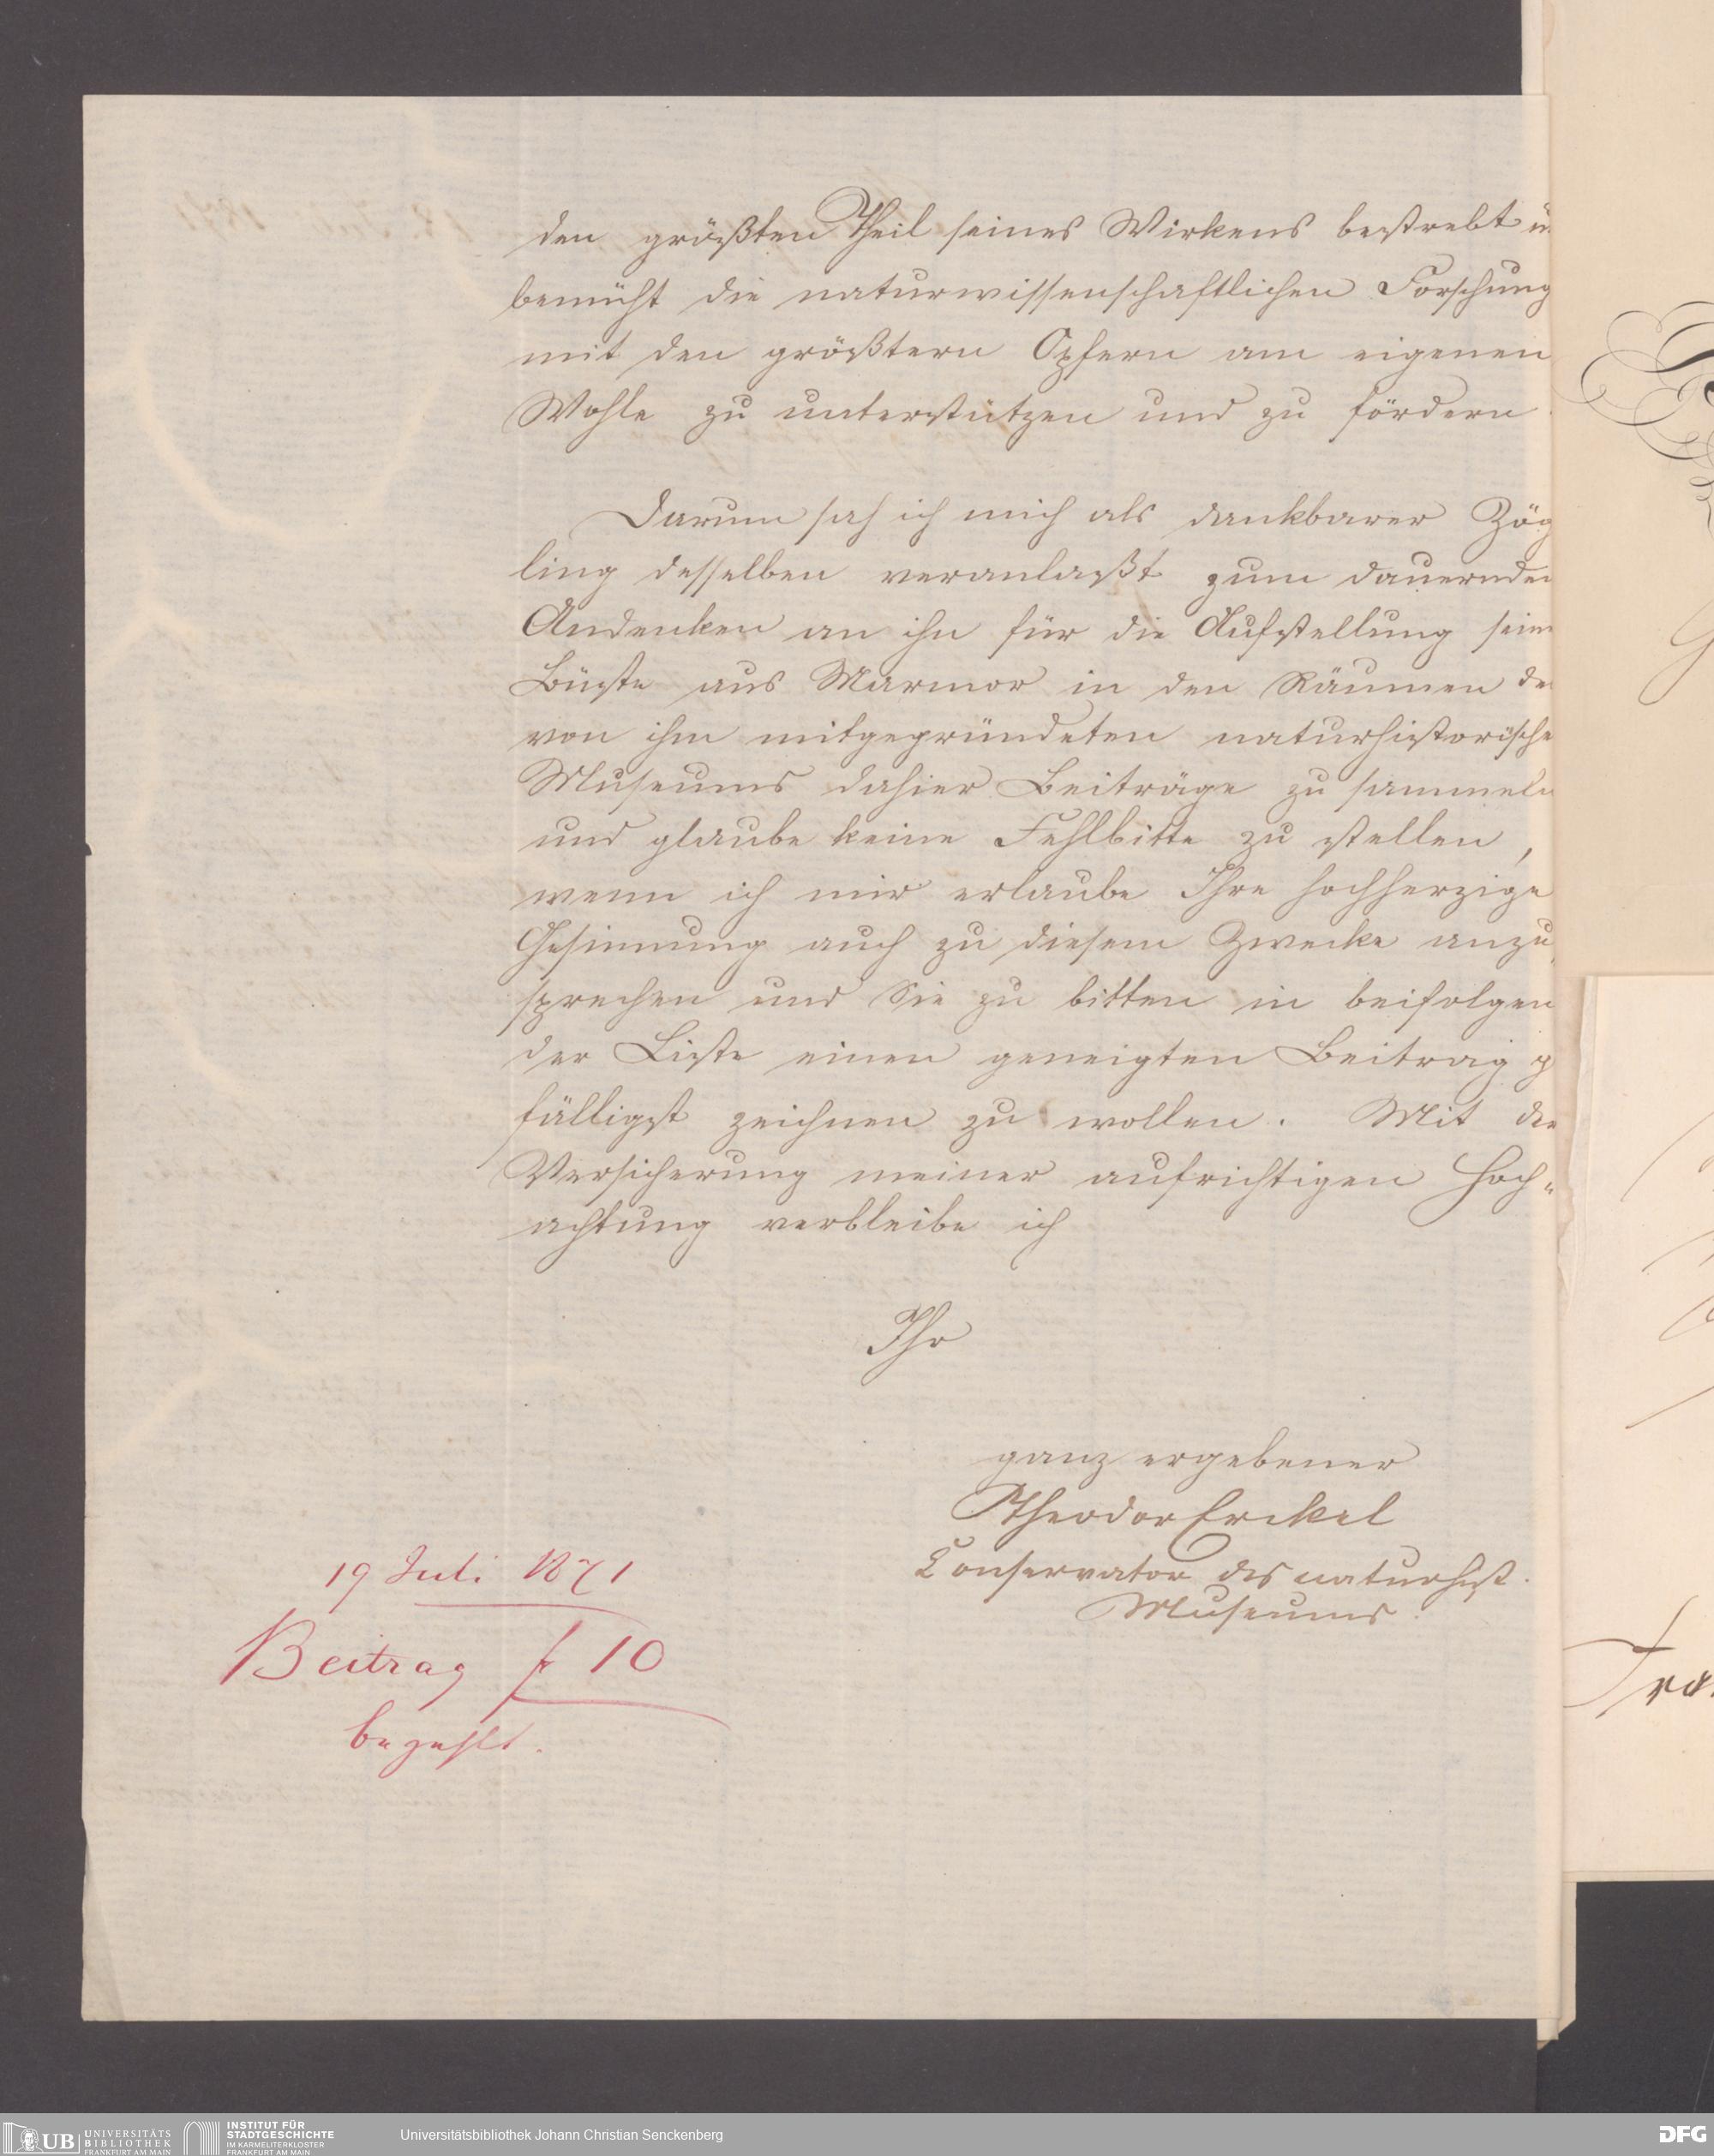 den größten Theil seines Wirkens bestrebt u
bemüht die naturwissenschaftlichen Forschung
mit den größtern Opfern am eigenen
Wohle zu unterstützen und zu fördern.
Darum sah ich mich als dankbarer Zög
ling desselben veranlaßt zum dauernden
Andenken an ihn für die Aufstellung seine
Büste aus Marmor in den Räumen de
von ihm mitgegründeten naturhistorische
Museums dahier Beiträge zu sammeln
und glaube keine Fehlbitte zu stellen,
wenn ich mir erlaube Ihre hochherzige
Gesinnung auch zu diesem Zwecke anzu
sprechen und Sie zu bitten in beifolgen
der Liste einen geneigten Beitrag g
fälligst zeichnen zu wollen. Mit der
Versicherung meiner aufrichtigen Hoch-
achtung verbleibe ich
Ihr
ganz ergebener
Theodor Erckel
Conservator des naturhist.
Museums.
19 Juli 1871
Beitrag f 10
bezahlt.
UB UNIVERSITÄTS
BIBLIOTHEK
FRANKFURT AM MAIN
INSTITUT FÜR
STADTGESCHICHTE
IM KARMELITERKLOSTER
FRANKFURT AM MAIN
Universitätsbibliothek Johann Christian Senckenberg
DFG